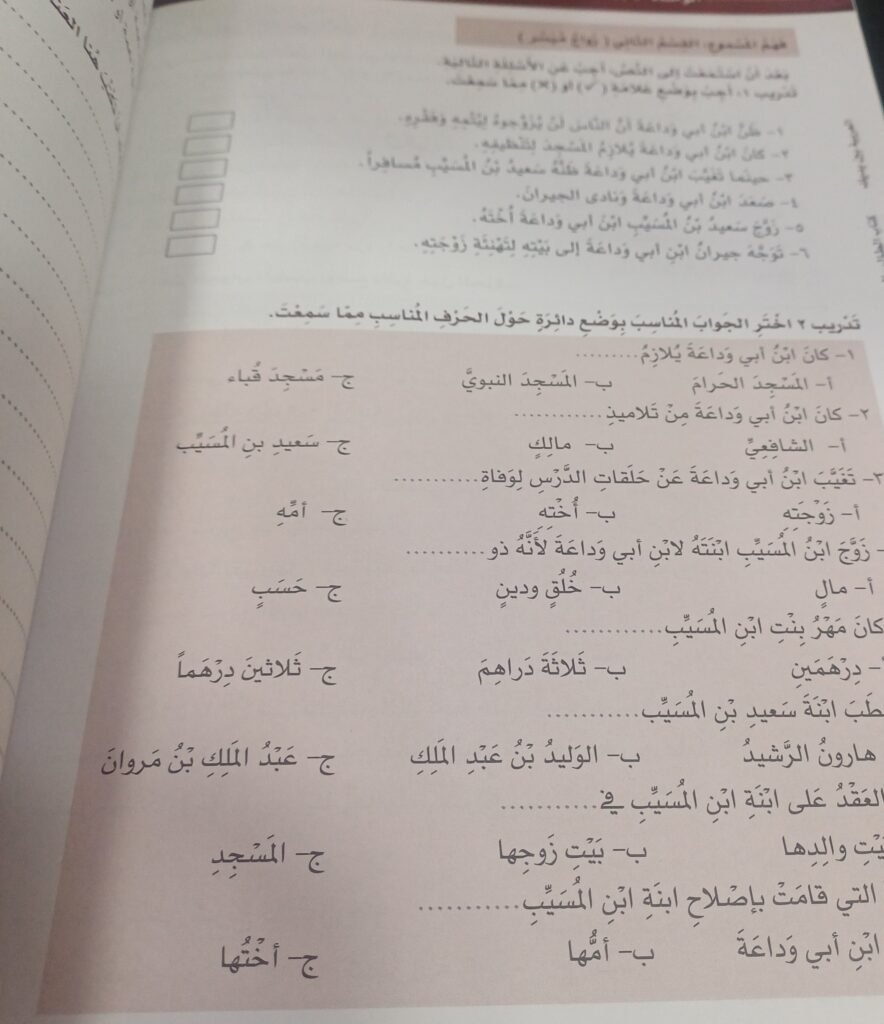 فَهْمُ المَسْموعِ: القِسْمُ الثّاني ( زَواجٌ مُيَسَّر )
بَعْدَ أنِ اسْتَمَعْتَ إلى النَّصِّ، أجِبْ عَنِ الأسْئِلَةِ التّالِيَةِ.
تَدْريب ١: أجِبْ بِوَضْعِ عَلامَةِ (✓) أو (×) مِمّا سَمِعْتَ.
١- ظَنَّ ابْنُ أبي وَداعَةَ أنَّ النّاسَ لَنْ يُزَوِّجوهُ لِيُتْمِهِ وَفَقْرِهِ.
٢- كانَ ابْنُ أبي وَداعَةَ يُلازِمُ المَسْجِدَ لِتَنْظيفِهِ.
٣- حينَما تَغَيَّبَ ابْنُ أبي وَداعَةَ ظَنَّهُ سَعيدُ بْنُ المُسَيِّبِ مُسافِراً.
٤- صَعَدَ ابْنُ أبي وَداعَةَ وَنادى الجيرانَ.
٥- زَوَّجَ سَعيدُ بْنُ المُسَيِّبِ ابْنَ أبي وَداعَةَ أُخْتَهُ.
٦- تَوَجَّهَ جيرانُ ابْنِ أبي وَداعَةَ إلى بَيْتِهِ لِتَهْنِئَةِ زَوْجَتِهِ.
تَدْريب ٢ اخْتَرِ الجَوابَ المُناسِبَ بِوَضْعِ دائِرَةٍ حَوْلَ الحَرْفِ المُناسِبِ مِمّا سَمِعْتَ.
١- كانَ ابْنُ أبي وَداعَةَ يُلازِمُ..........
أ- المَسْجِدَ الحَرامَ ب- المَسْجِدَ النبويَّ ج- مَسْجِدَ قُباء
٢- كانَ ابْنُ أبي وَداعَةَ مِنْ تَلاميذِ............
أ- الشافِعِيِّ ب- مالِكٍ ج- سَعيدِ بنِ المُسَيِّب
٣- تَغَيَّبَ ابْنُ أبي وَداعَةَ عَنْ حَلَقاتِ الدَّرْسِ لِوَفاةِ...........
أ- زَوْجَتِهِ ب- أُخْتِهِ ج- أمِّهِ
- زَوَّجَ ابْنُ المُسَيِّبِ ابْنَتَهُ لابْنِ أبي وَداعَةَ لأنَّهُ ذو..........
أ- مالٍ ب- خُلُقٍ ودينٍ ج- حَسَبٍ
كانَ مَهْرُ بِنْتِ ابْنِ المُسَيِّبِ............
- دِرْهَمَينِ ب- ثَلاثَةَ دَراهِمَ ج- ثَلاثينَ دِرْهَماً
طَبَ ابْنَةَ سَعيدِ بْنِ المُسَيِّب...........
هارونُ الرَّشيدُ ب- الوَليدُ بْنُ عَبْدِ المَلِكِ ج- عَبْدُ المَلِكِ بْنُ مَروانَ
العَقْدُ عَلى ابْنَةِ ابْنِ المُسَيِّبِ في...........
يْتِ والِدِها ب- بَيْتِ زَوجِها ج- المَسْجِدِ
التي قامَتْ بإصْلاحِ ابنَةِ ابْنِ المُسَيِّبِ............
ابْنِ أبي وَداعَةَ ب- أمُّها ج- أخْتُها